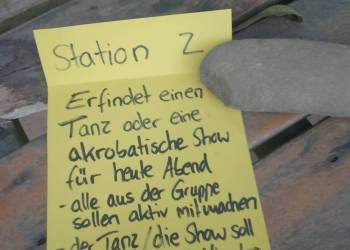 Station 2
Erfindet einen
Tanz oder eine
akrobatische Show
für heute Abend
- alle aus der Gruppe
sollen aktiv mitmachen
- der Tanz/die Show soll